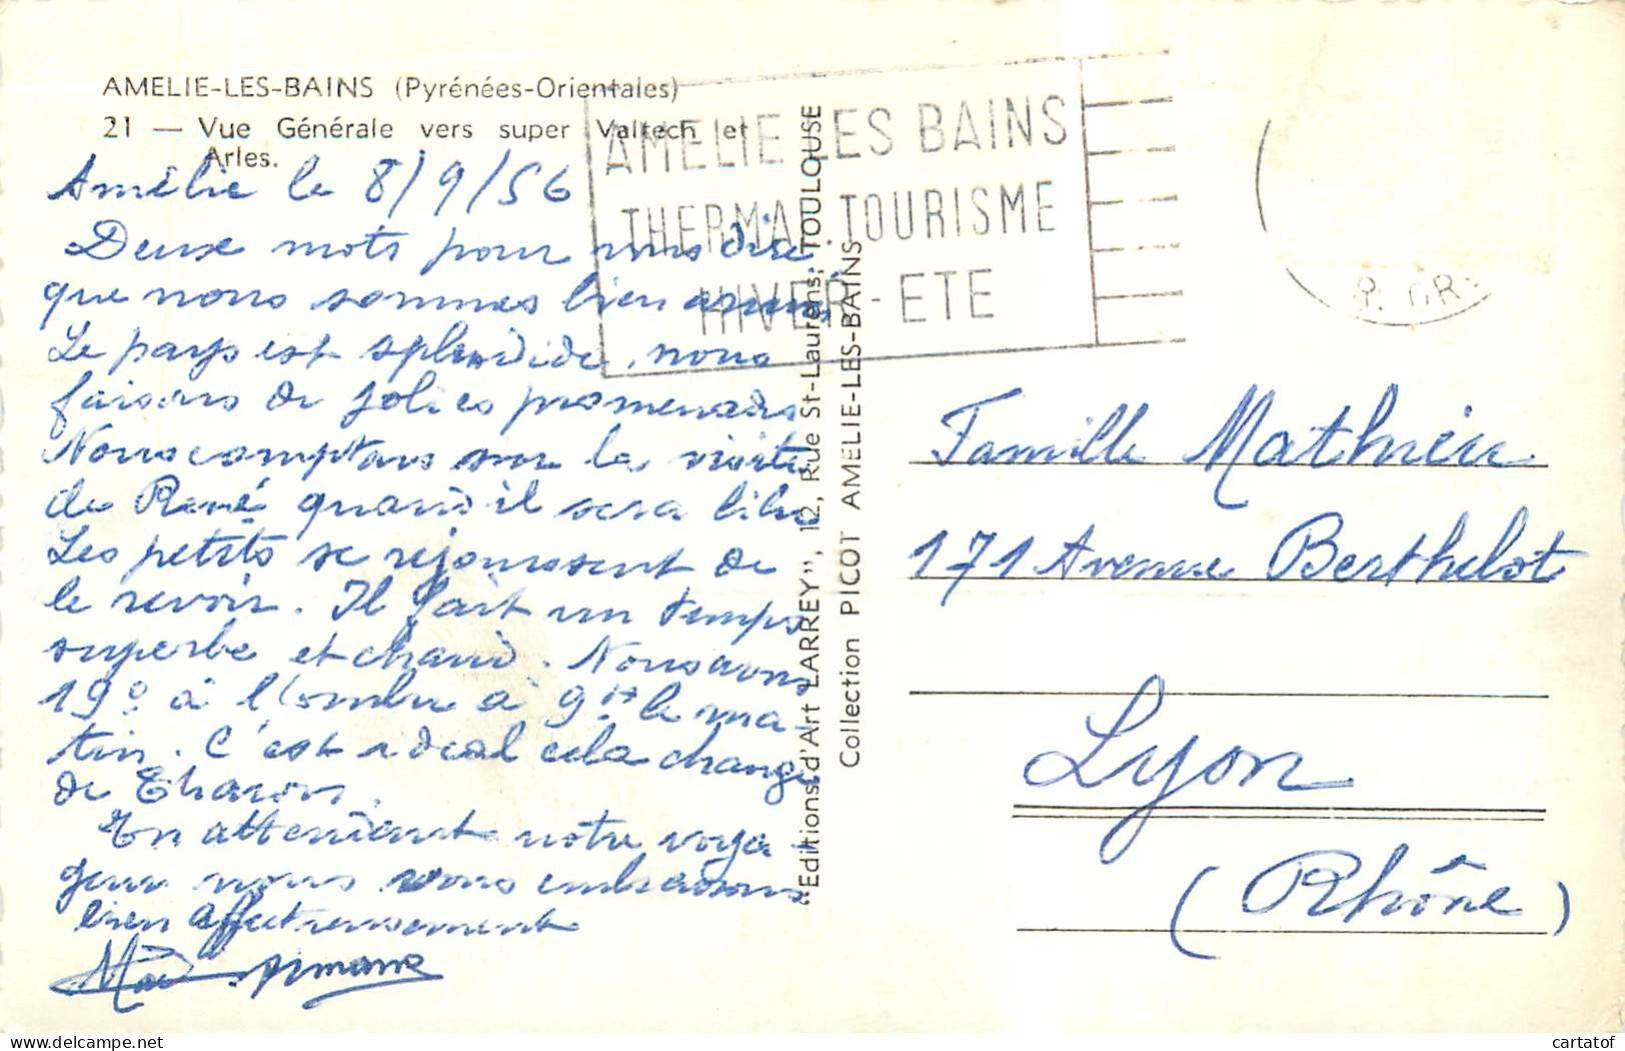 AMELIE-LES-BAINS (Pyrénées-Orientales)
21 — Vue Générale vers super Valtech et
Arles.
AMELIE LES BAINS
THERMAL.TOURISME
HIVER - ETE
P. OR
Amélie le 8/9/56
Deux mots pour vous dire
que nous sommes bien arrivés
Le pays est splendide, nous
faisons de jolies promenades
Nous comptons sur la visite
de René quand il sera libre
Les petits se rejouissent de
le revoir. Il fait un temps
superbe et chaud. Nous avons
19° à l'ombre à 9H le ma-
tin. C'est idéal cela change
de Charons.
En attendant notre voya-
geur nous vous embrassons
bien affectueusement
"Editions d'Art LARREY", 12, Rue St-Laurens, TOULOUSE
Collection PICOT AMELIE-LES-BAINS
Famille Mathieu
171 Avenue Berthelot
Lyon
(Rhône)
cartatof